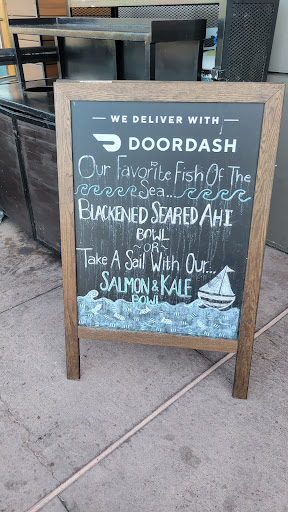 — WE DELIVER WITH —
DOORDASH
Our Favorite Fish Of The
Sea...
Blackened Seared Ahi
Bowl
~OR~
Take A Sail With Our...
Salmon & Kale
Bowl